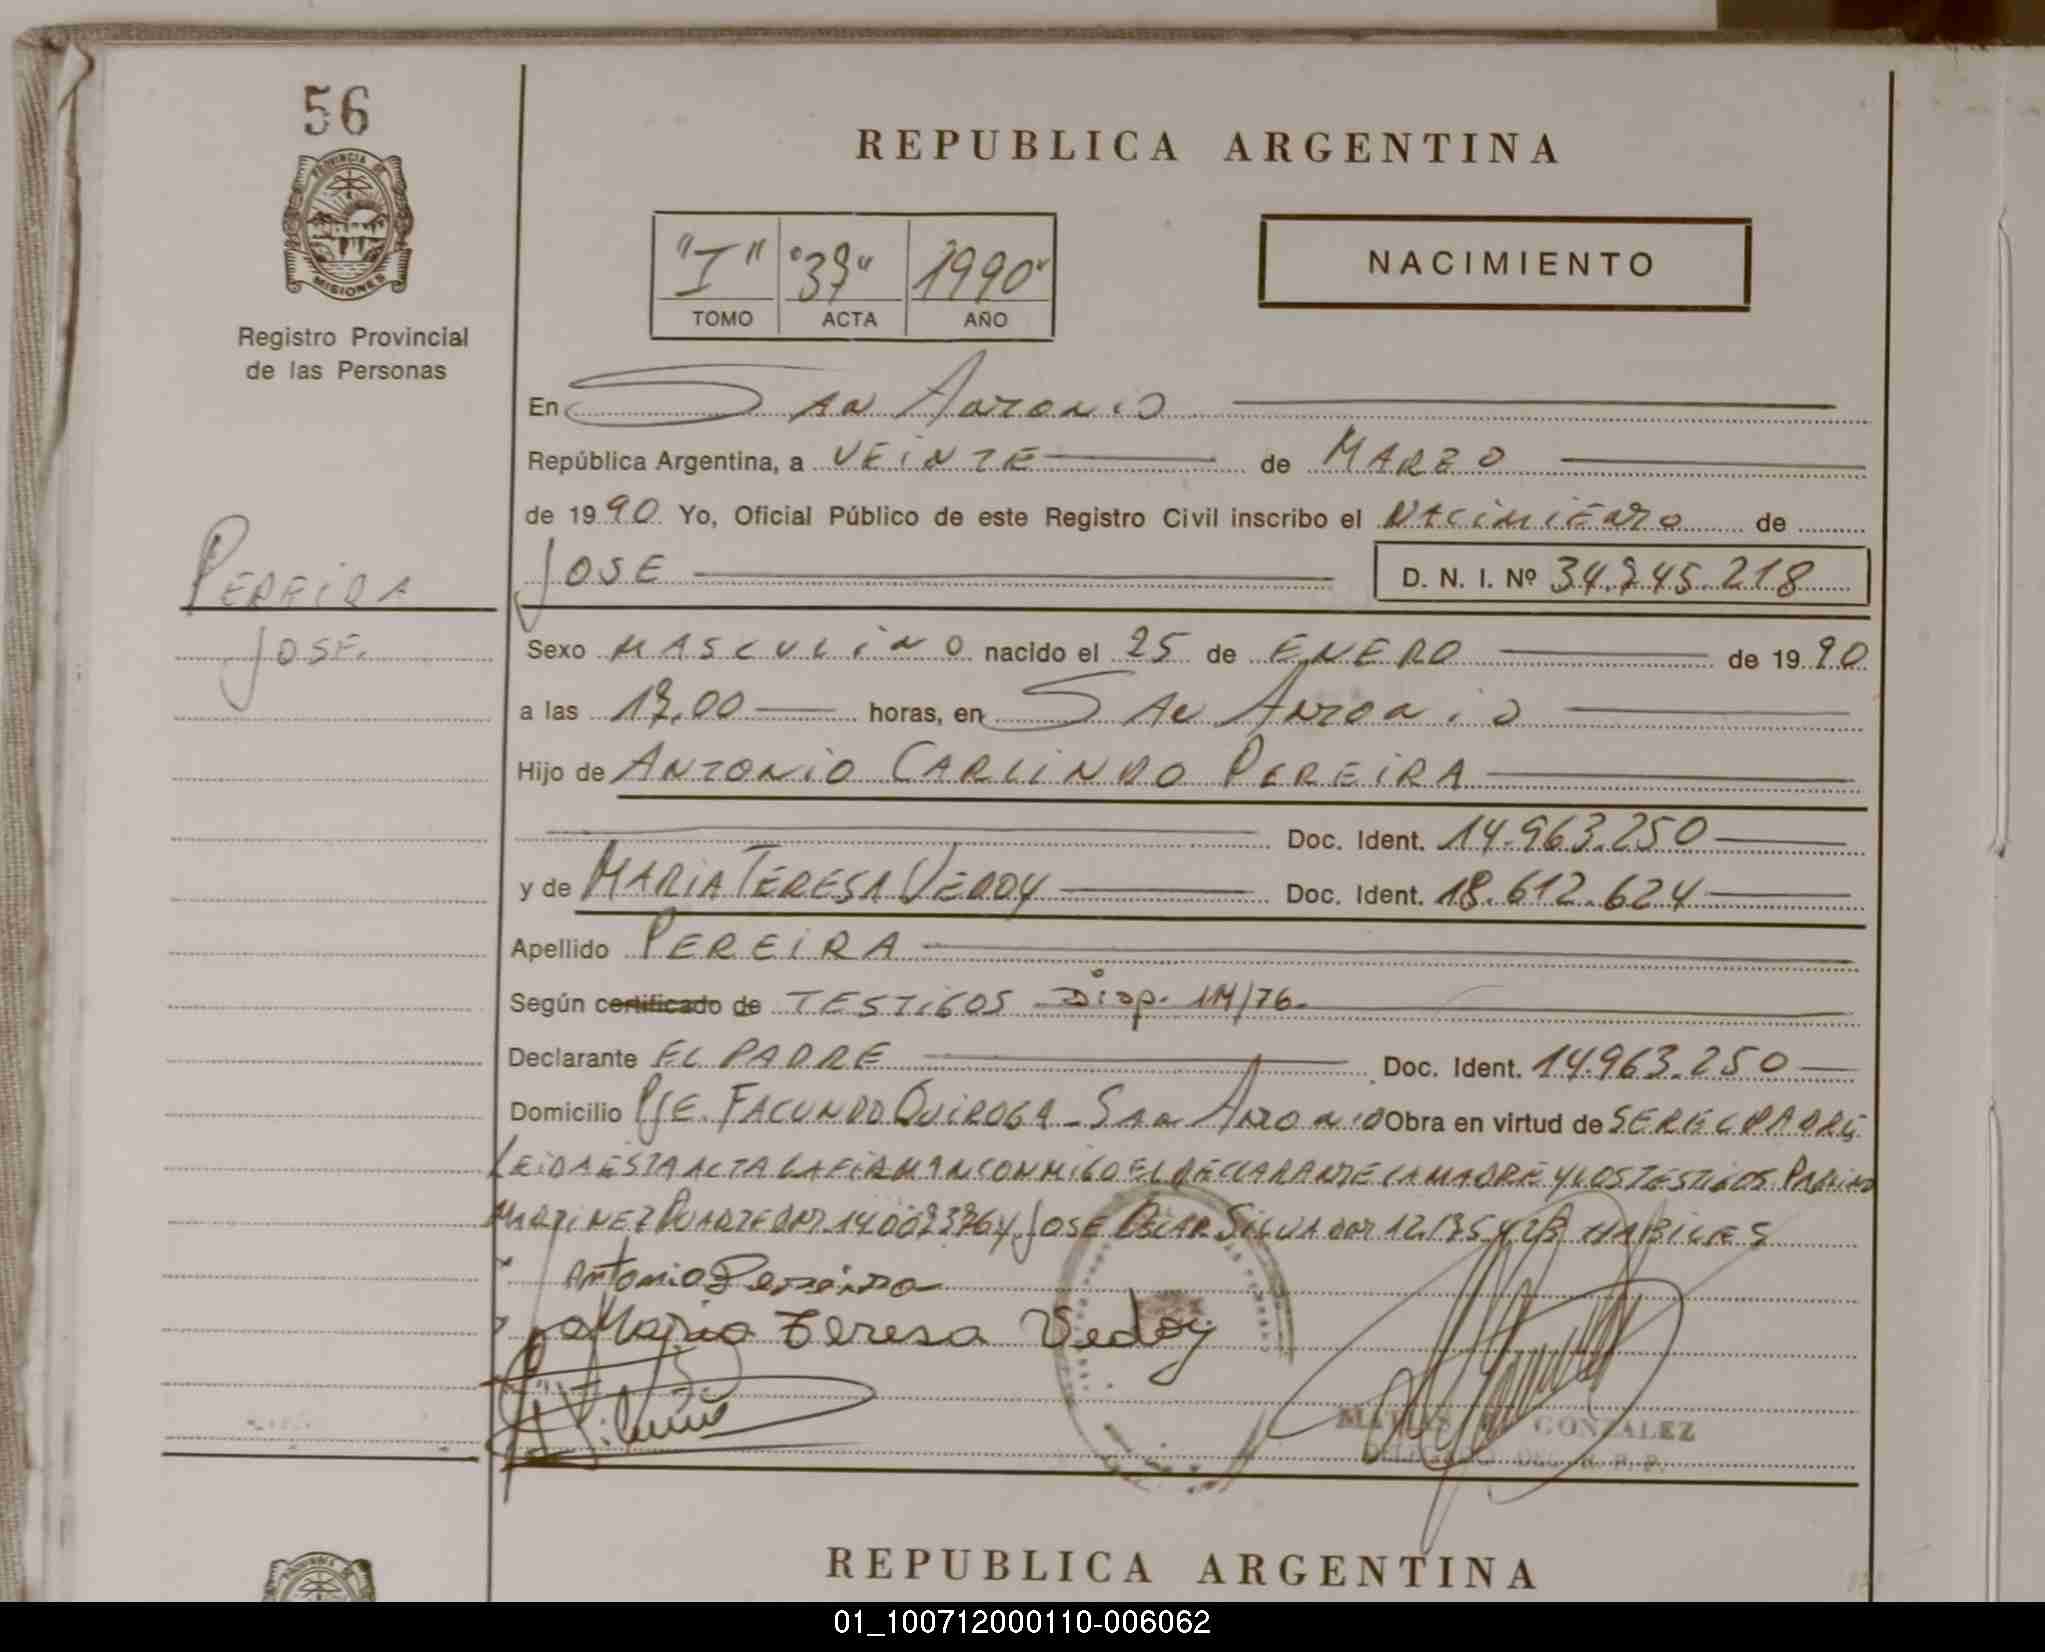 56
REPUBLICA ARGENTINA
PROVINCIA DE
MISIONES
Registro Provincial
de las Personas
"I" "37" 1990"
TOMO ACTA AÑO
NACIMIENTO
En SAN ANTONIO
República Argentina, a VEINTE de MARZO
de 1990 Yo, Oficial Público de este Registro Civil inscribo el NACIMIENTO de
JOSE D. N. I. Nº 34.745.218
PEREIRA
JOSE.
Sexo MASCULINO nacido el 25 de ENERO de 1990
a las 17,00 horas, en SAN ANTONIO
Hijo de ANTONIO CARLINDO PEREIRA
Doc. Ident. 14.963.250
y de MARIA TERESA VEDOY Doc. Ident. 18.612.624
Apellido PEREIRA
Según certificado de TESTIGOS Disp. 1M/76.
Declarante EL PADRE Doc. Ident. 14.963.250
Domicilio PJE. FACUNDO QUIROGA - SAN ANTONIO Obra en virtud de SER EL PADRE
LEIDA ESTA ACTA LA FIRMAN CONMIGO EL DECLARANTE LA MADRE Y LOS TESTIGOS
MARTINEZ DUARTE Y JOSE OSCAR SILVA HABILES
Antonio Pereira
Maria Teresa Vedoy
GONZALEZ
REPUBLICA ARGENTINA
01_100712000110-006062